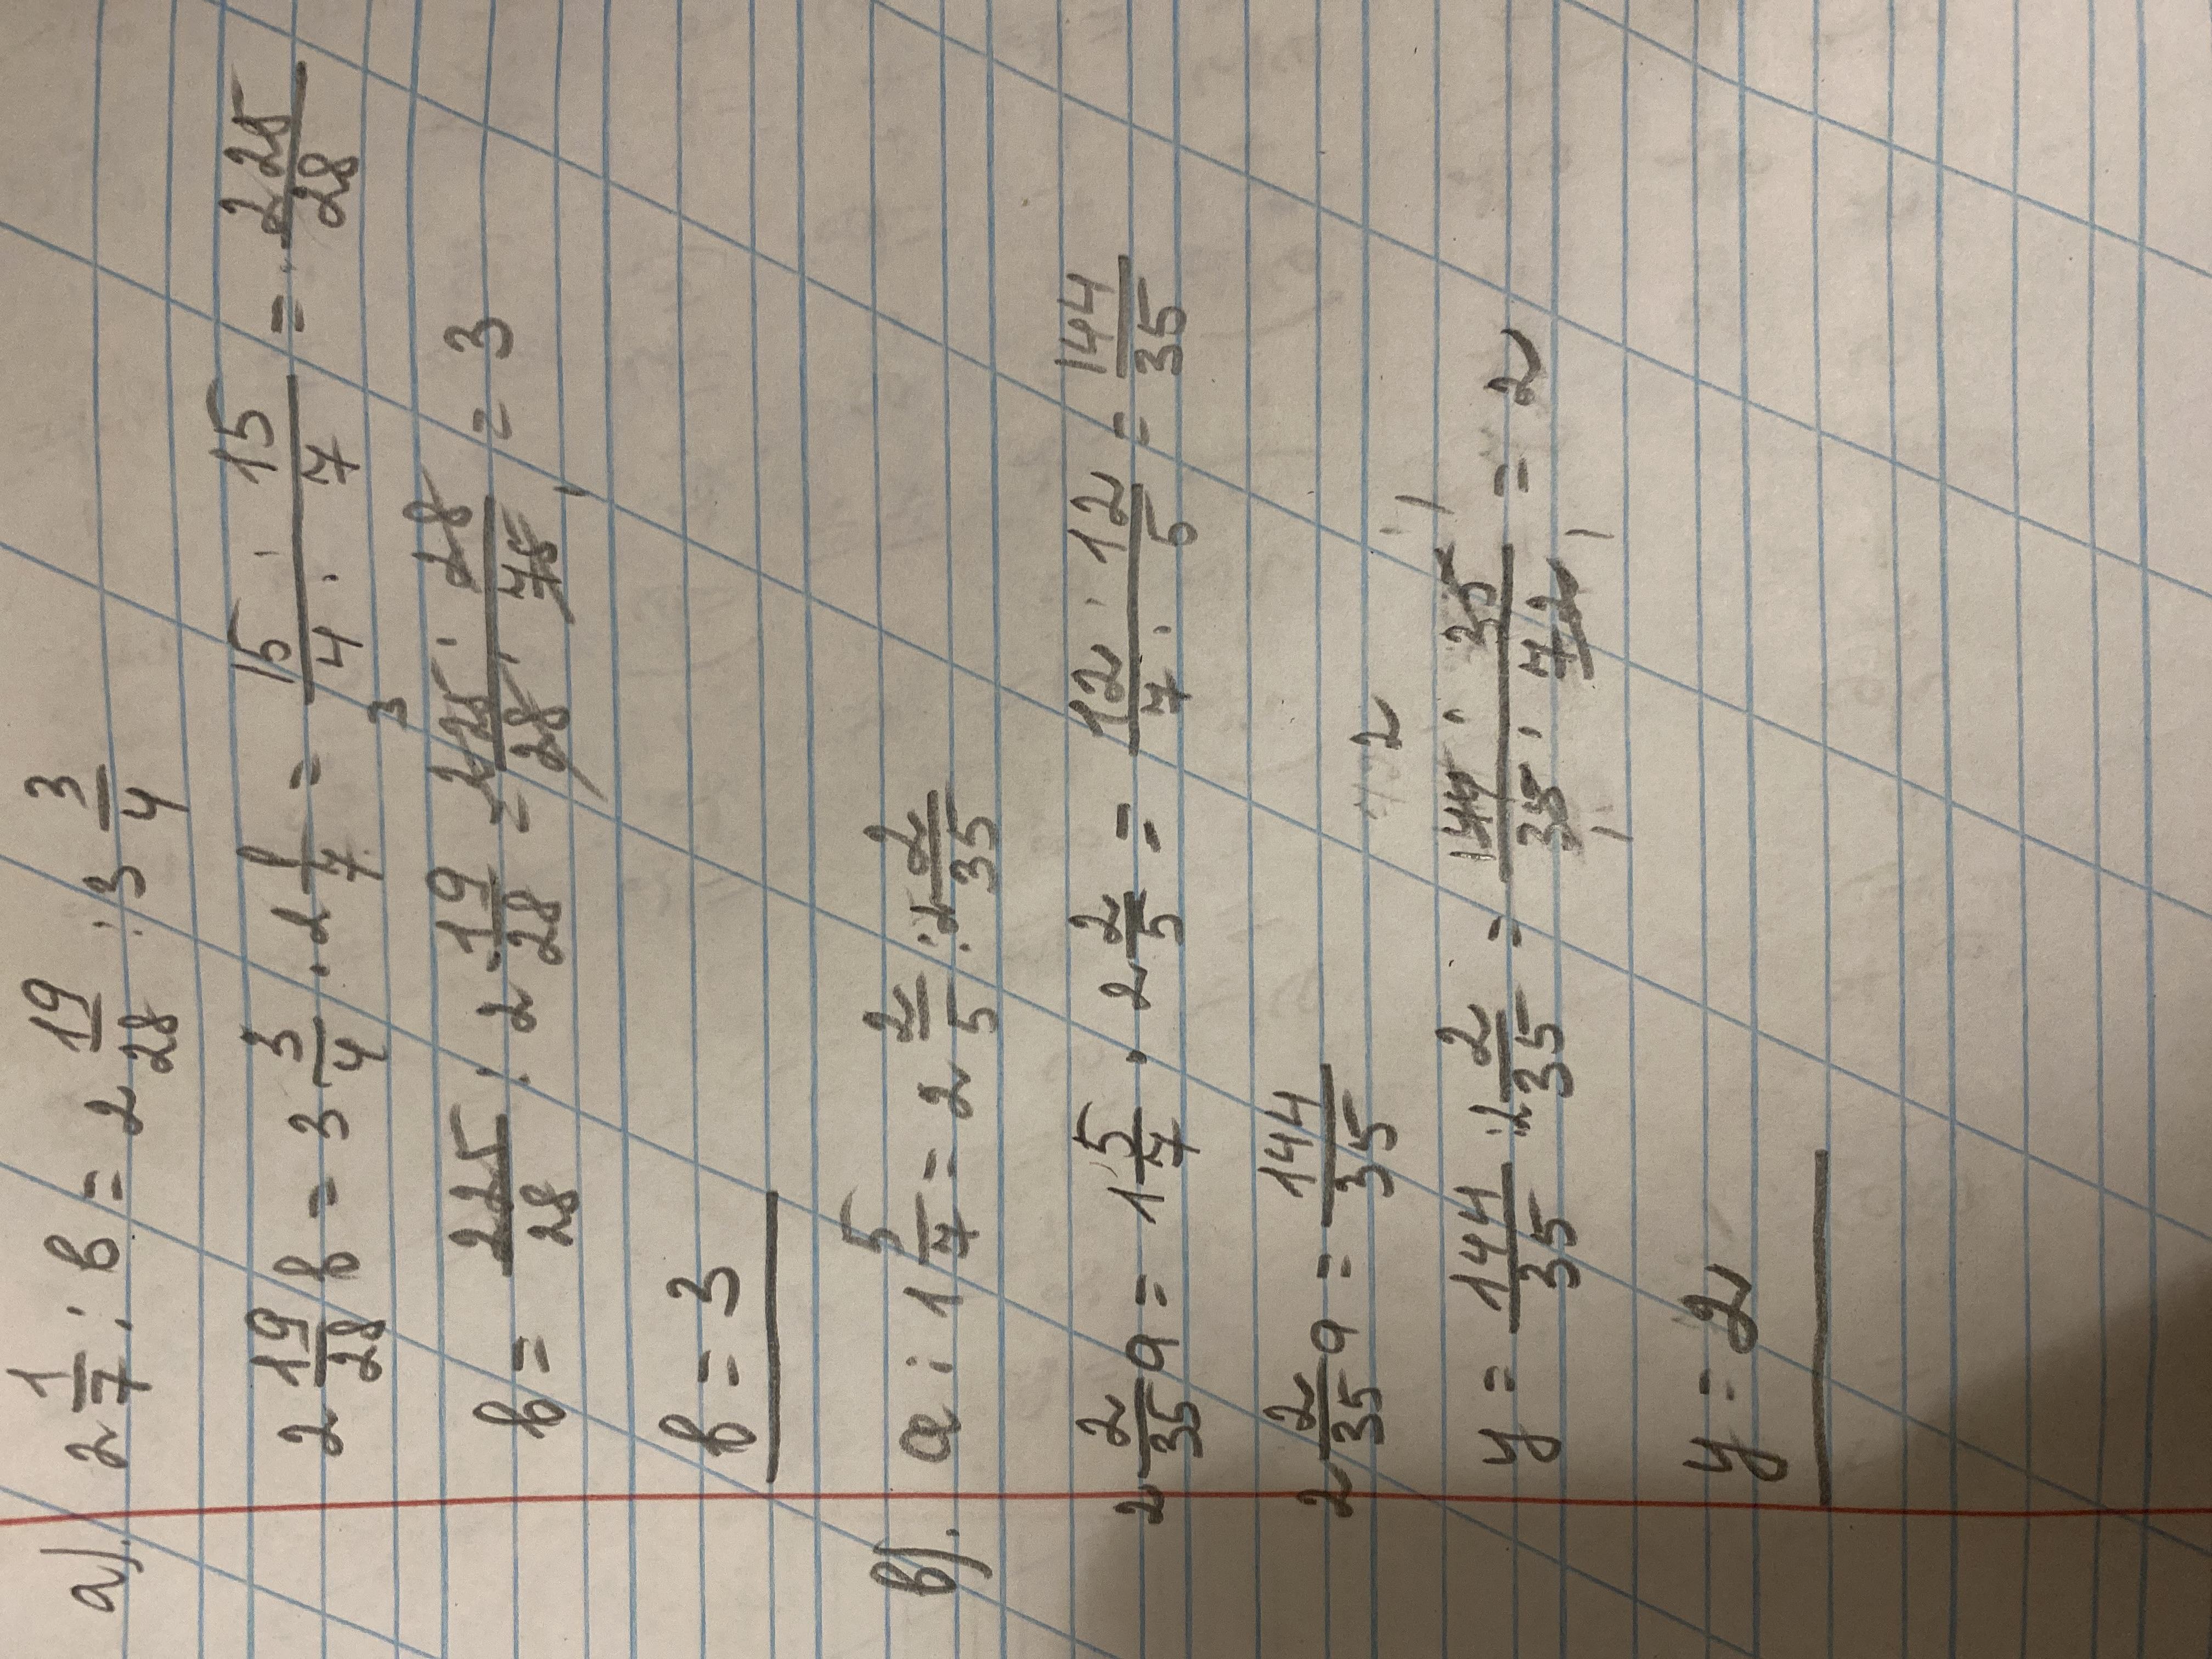 а). 2 1/7 : в = 2 19/28 : 3 3/4
2 19/28 в = 3 3/4 · 2 1/7 = 15 · 15 / 4 · 7 = 225/28
в = 225/28 : 2 19/28 = 225 · 28 / 28 · 75 = 3
в = 3
в). а : 1 5/7 = 2 2/5 : 2 2/35
2 2/35 а = 1 5/7 · 2 2/5 = 12 · 12 / 7 · 5 = 144/35
2 2/35 а = 144/35
у = 144/35 : 2 2/35 = 144 · 35 / 35 · 72 = 2
у = 2